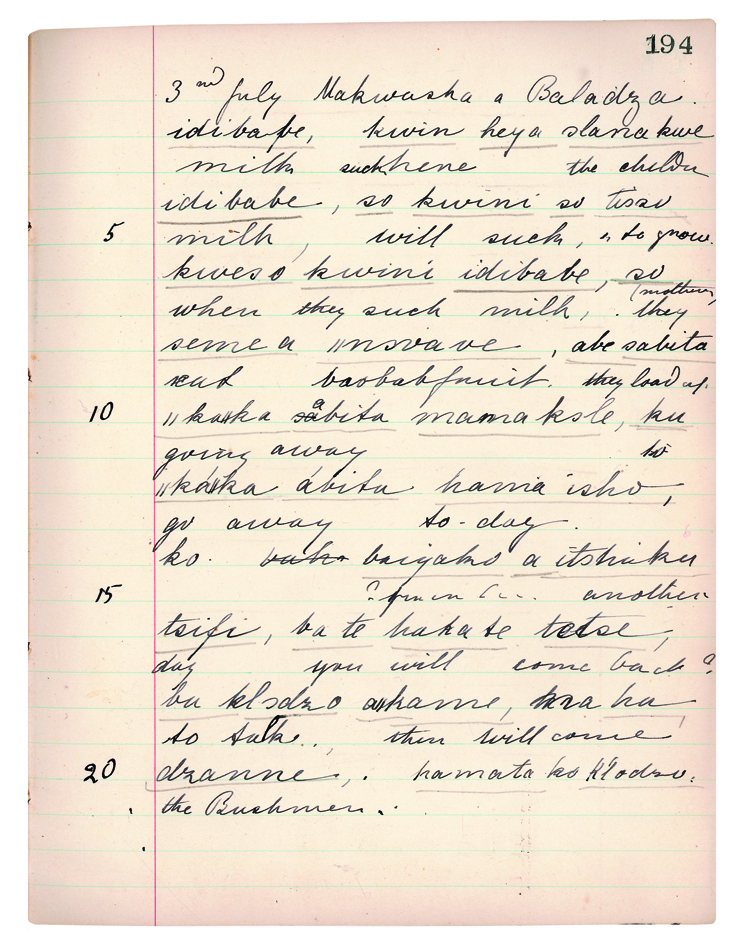 194
3nd July Makwasha a Baladza.
idibabe, kwin heya slanakwe
milk suck here the childn
idibabe, so kwini so tisso
5 milk, will suck, " to grow.
kweso kwini idibabe, so
when they such milk, . they (mothers)
semea "nsvave, abe sabita
eat baobabfruit. they load up.
10 "ka"ka sabita mamaksle, ku
going away to
"ká"ka ábita hama isho,
go away to-day.
ko. baigako a itshuku
15 ? another
tsifi, ba te hakate tetse,
day you will come back?
bu klsdzo a"kame, kra ha
to talke., then will come
20 dzanne,. hamata ko Klodzo.
the Bushmen.